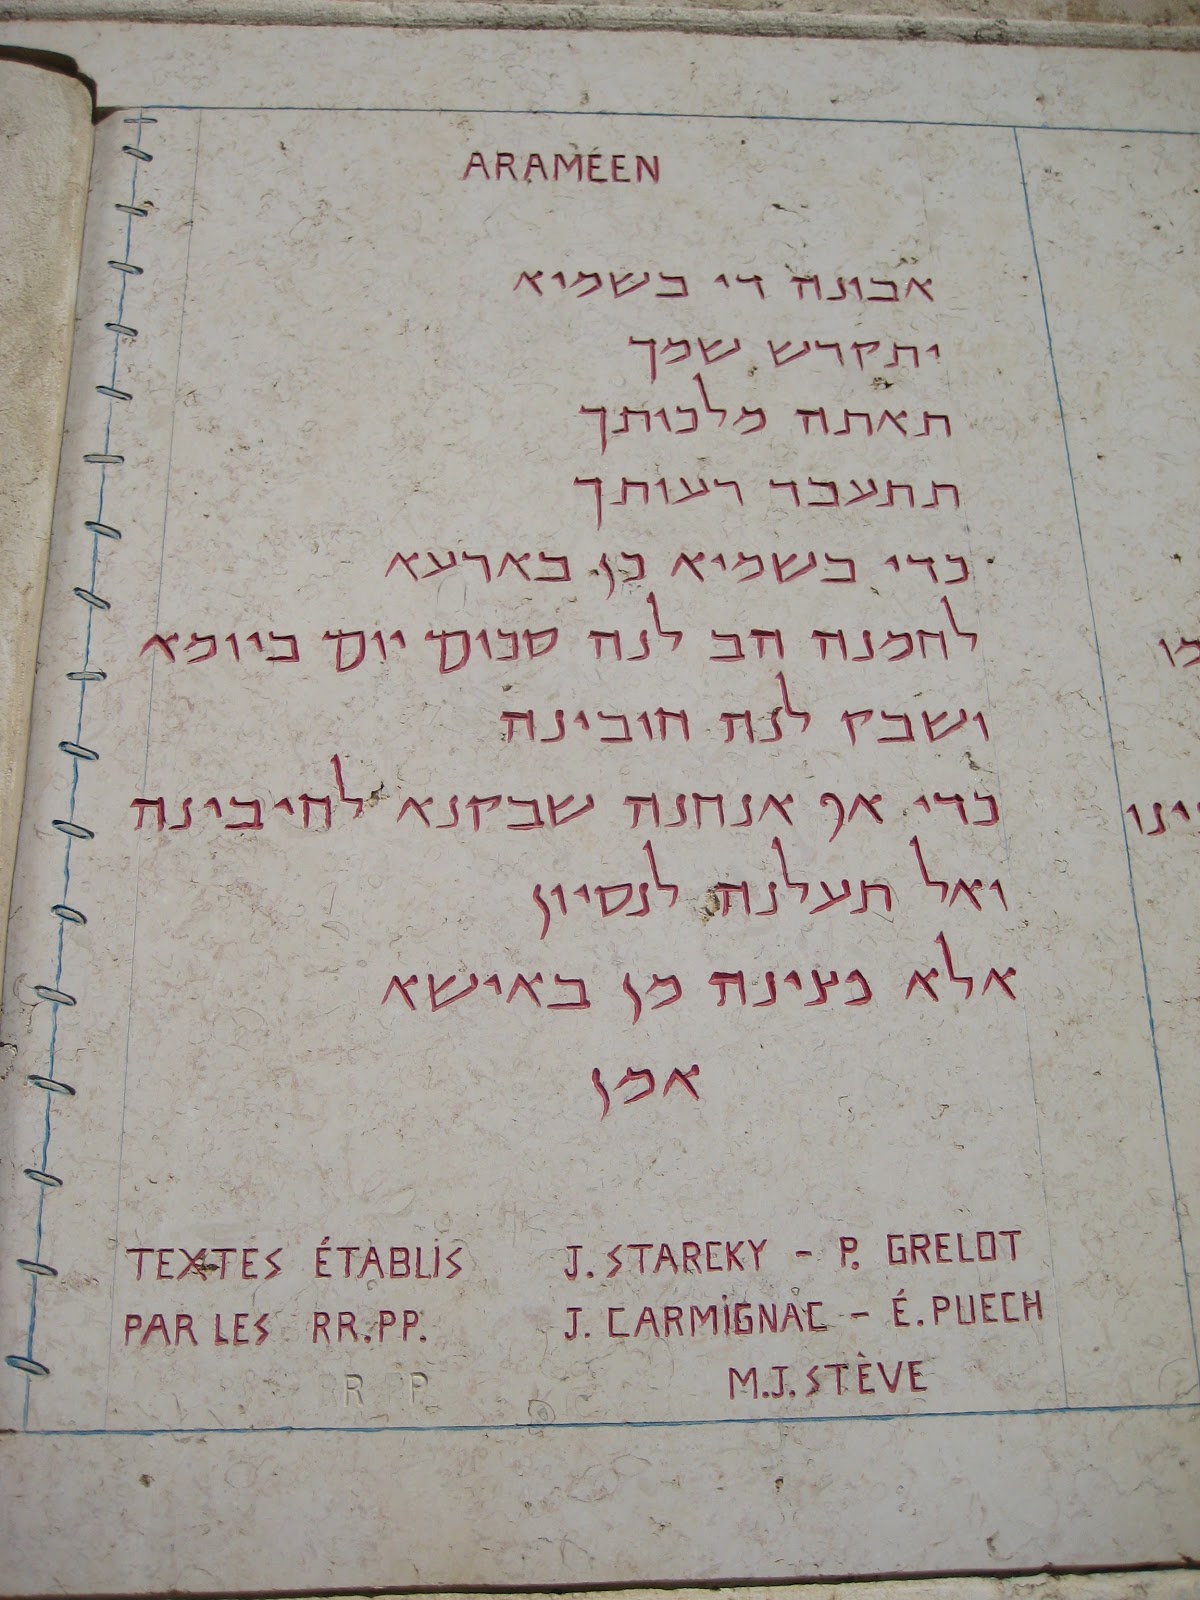 ARAMÉEN
אבונה די בשמיא
יתקדש שמך
תאתה מלכותך
תתעבד רעותך
כדי בשמיא כן בארעא
לחמנה הב לנה סכום יום ביומא
ושבק לנה חובינה
כדי אף אנחנה שבקנא לחיבינה
ואל תעלנה לנסיון
אלא פצינה מן באישא
אמן
TEXTES ÉTABLIS J. STARCKY - P. GRELOT
PAR LES RR.PP. J. CARMIGNAC - É. PUECH
R P. M.J. STÈVE